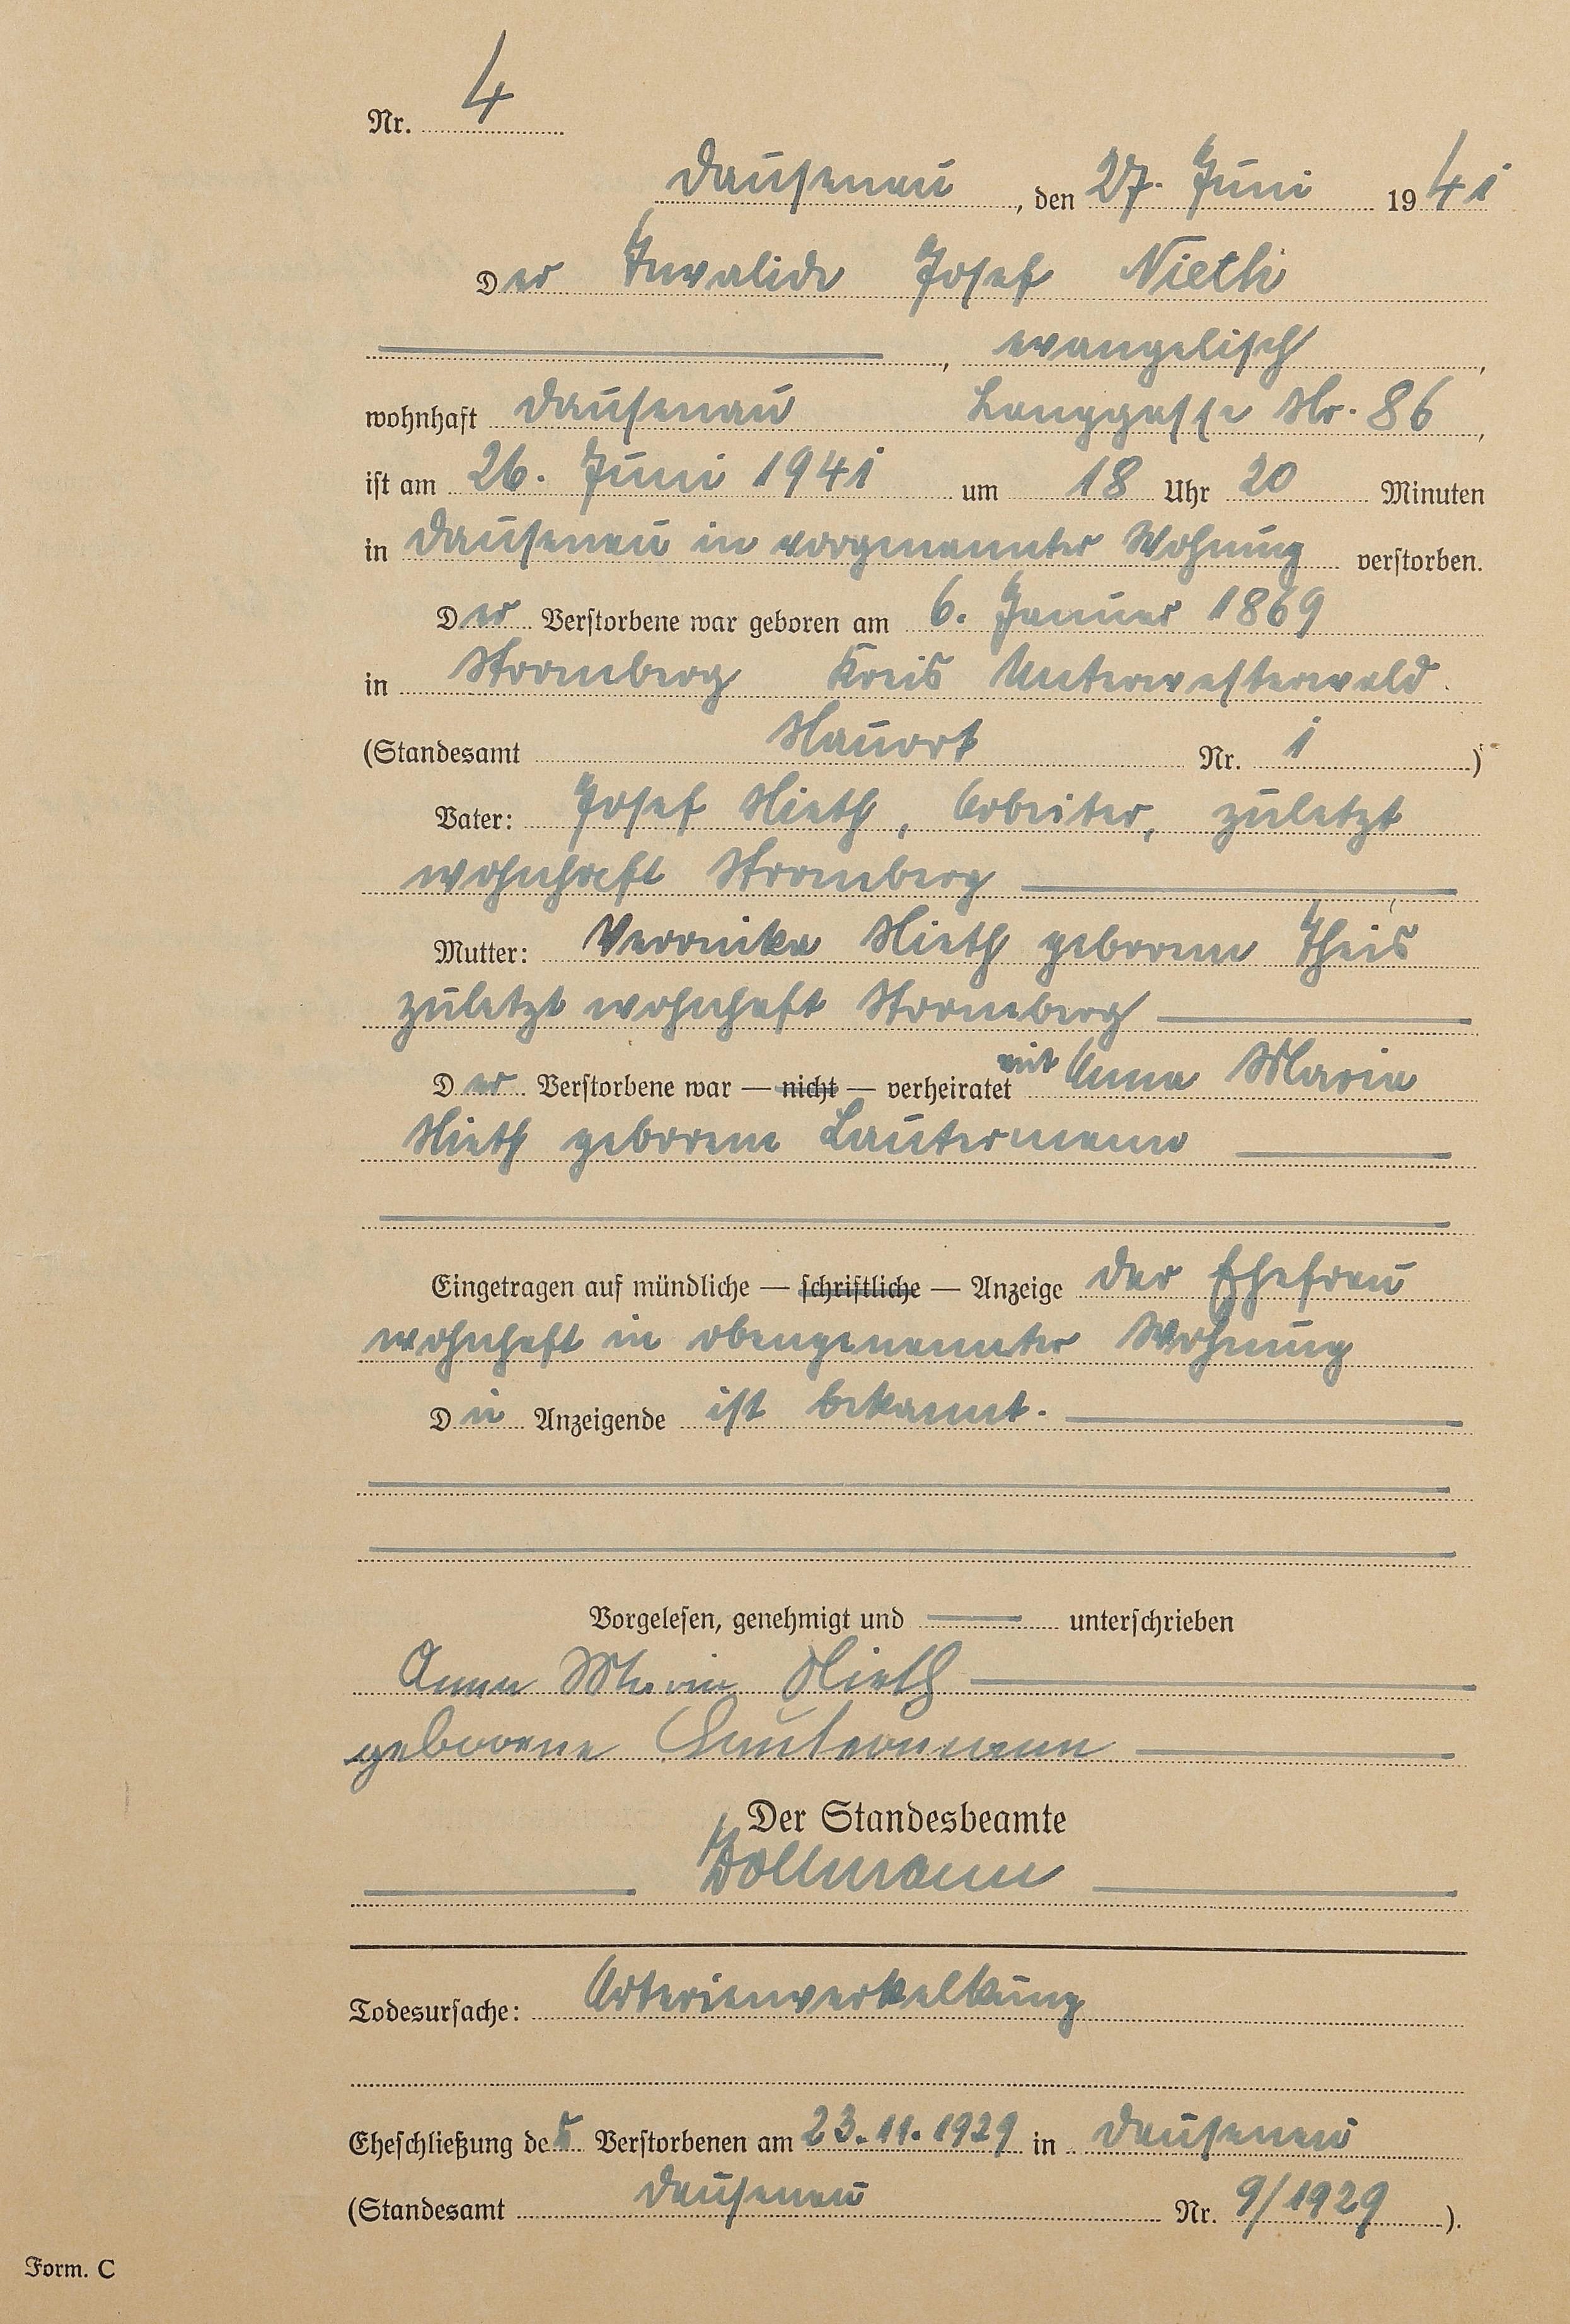 Nr. 4
Dausenau, den 27. Juni 1941
Der Invalide Josef Nieth
, evangelisch,
wohnhaft Dausenau Langgasse Nr. 86,
ist am 26. Juni 1941 um 18 Uhr 20 Minuten
in Dausenau in vorgenannter Wohnung verstorben.
Der Verstorbene war geboren am 6. Januar 1869
in Stromberg Kreis Unterwesterwald.
(Standesamt Nauort Nr. 1)
Vater: Josef Nieth, Arbeiter, zuletzt
wohnhaft Stromberg
Mutter: Veronika Nieth geborene Theis
zuletzt wohnhaft Stromberg
Der Verstorbene war — nicht — verheiratet mit Anna Maria
Nieth geborene Lautermann
Eingetragen auf mündliche — schriftliche — Anzeige der Ehefrau
wohnhaft in obengenannter Wohnung
Die Anzeigende ist bekannt.
Vorgelesen, genehmigt und unterschrieben
Anna Maria Nieth
geborene Lautermann
Der Standesbeamte
Dollmann
Todesursache: Arterienverkalkung
Eheschließung des Verstorbenen am 23.11.1929 in Dausenau
(Standesamt Dausenau Nr. 9/1929).
Form. C